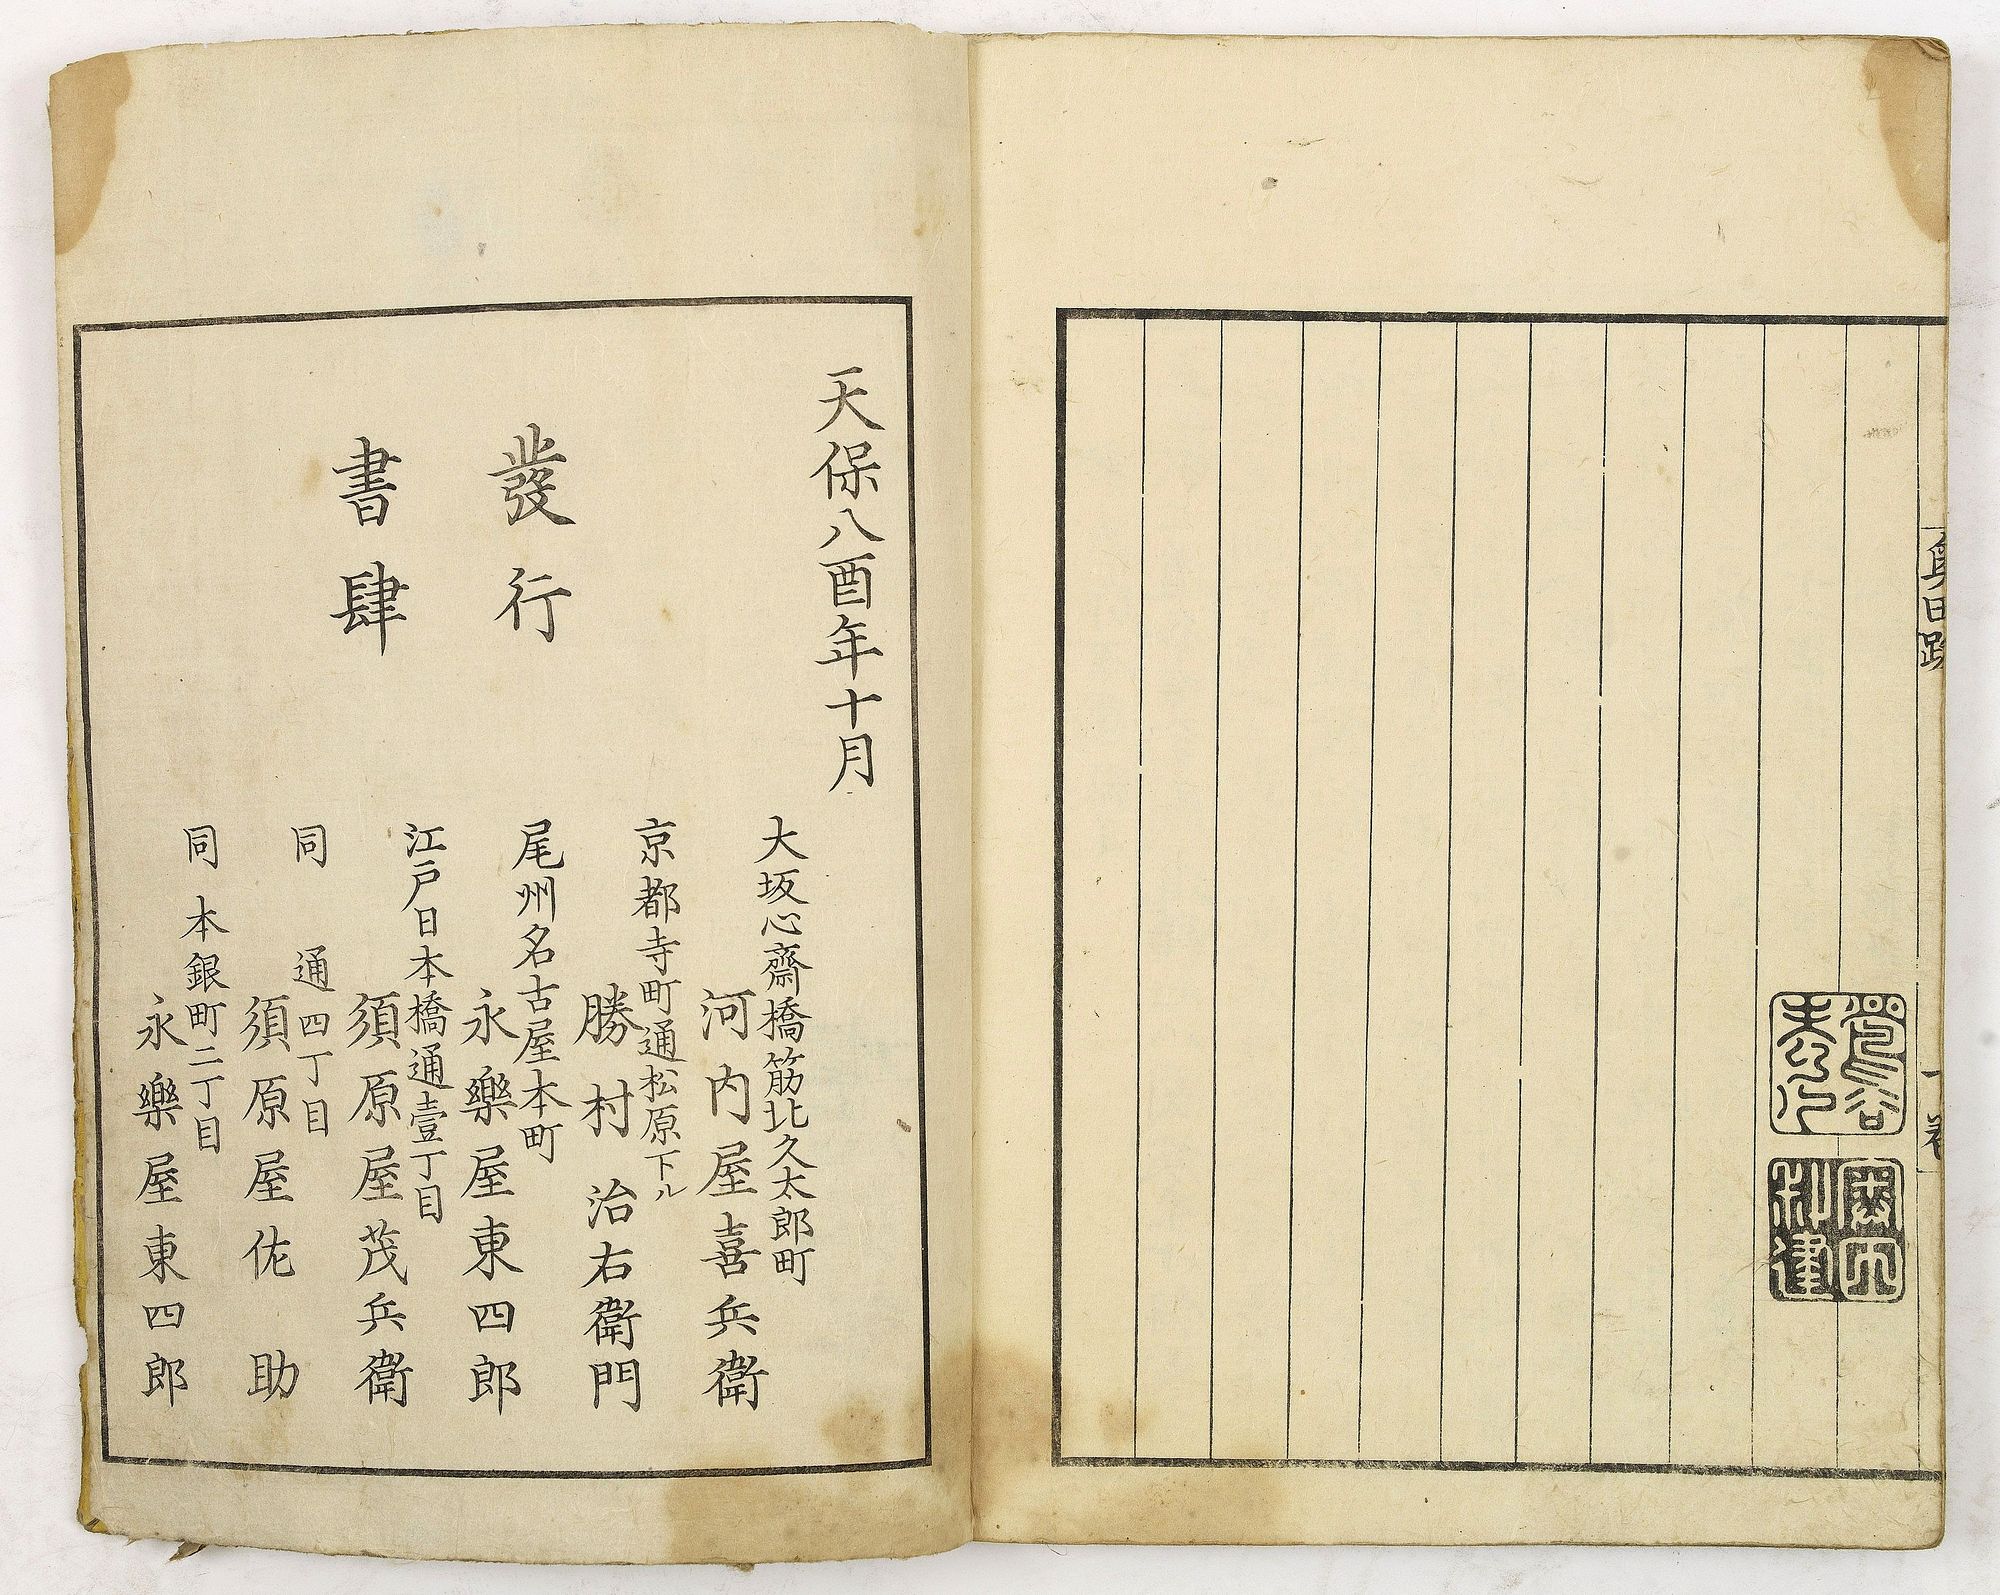 天保八酉年十月
發行
書肆
大坂心齋橋筋北久太郎町
河内屋喜兵衛
京都寺町通松原下ル
勝村治右衛門
尾州名古屋本町
永樂屋東四郎
江戸日本橋通壹丁目
須原屋茂兵衛
同 通四丁目
須原屋佐助
同 本銀町二丁目
永樂屋東四郎